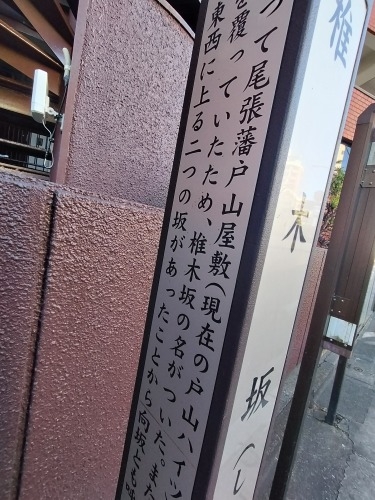 椎木坂(し
つて尾張藩戸山屋敷(現在の戸山ハイツ
を覆っていたため、椎木坂の名がついた。また
東西に上る二つの坂があったことから向坂とも呼